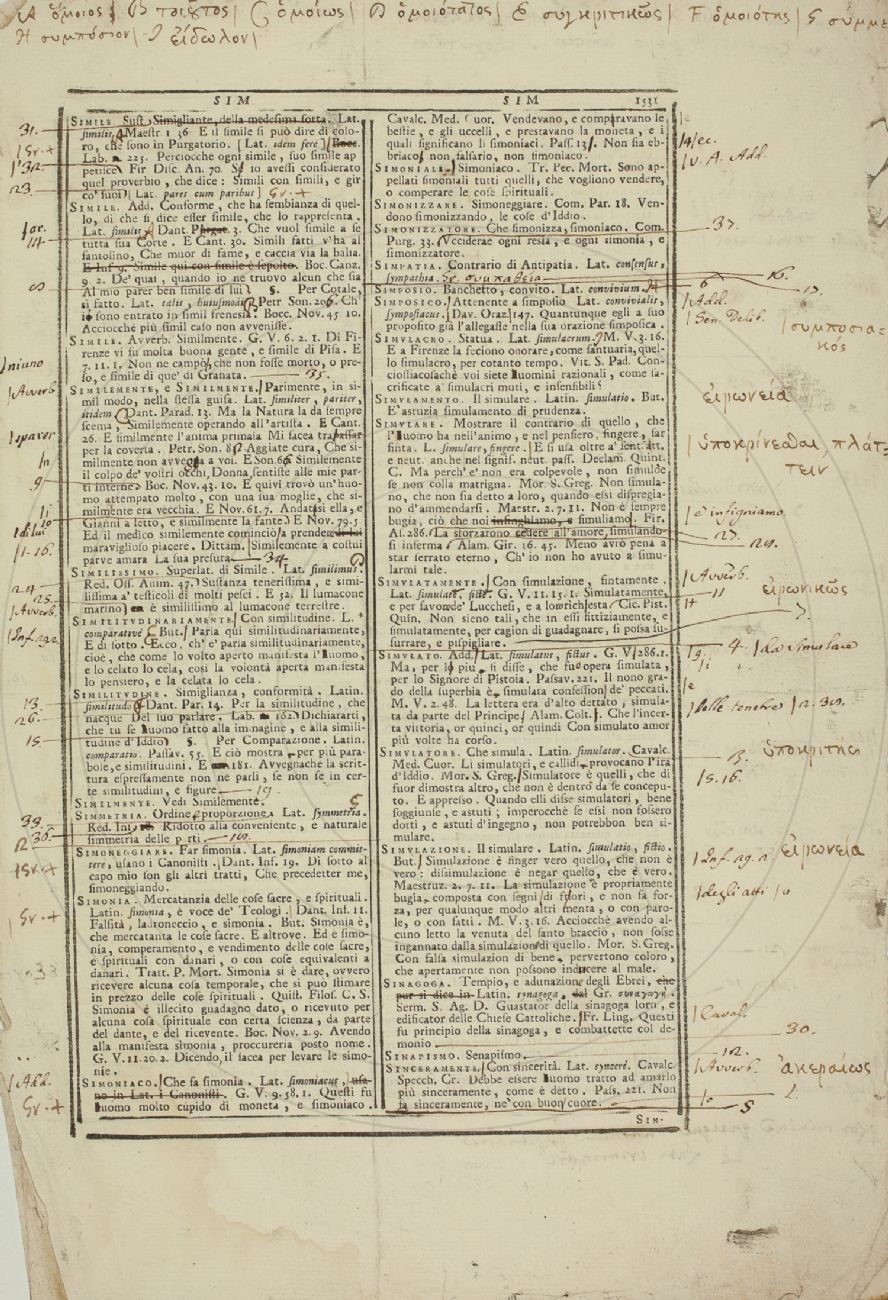 A ὅμοιος | B | C ὁμοίως | D ὁμοιότατος | E συγκριτικῶς | F ὁμοιότης | G
H συμπόσιον | I εἴδωλον |
SIM
SIM 1531
SIMILE. Sust. Simigliante, della medesima sorta. Lat.
similis. Maestr. 1 36. E il simile si può dire di colo-
ro, che sono in Purgatorio. Lat. idem fere
Lab. n. 225. Perciocchè ogni simile, suo simile ap-
petisce. Fir Disc. An. 70. Se io avessi considerato
quel proverbio, che dice: Simili con simili, e gir
co' suoi. Lat. pares cum paribus
SIMILE. Add. Conforme, che ha sembianza di quel-
lo, di che si dice esser simile, che lo rappresenta.
Lat. similis. Dant. Purg. 3. Che vuol simile a se
tutta sua Corte. E Cant. 30. Simili fatti v'ha al
fantolino, Che muor di fame, e caccia via la balia.
E Inf 9. Simile qui con simile è sepolto. Boc. Canz.
9. 2. De' quai, quando io ne truovo alcun che sia
Al mio parer ben simile di lui §. Per Cotale,
sì fatto. Lat. talis, huiusmodi. Petr Son. 206. Ch'
io sono entrato in simil frenesia. Bocc. Nov. 45 10.
Acciocchè più simil caso non avvenisse.
SIMILE. Avverb. Similmente. G. V. 6. 2. 1. Di Fi-
renze vi fu molta buona gente, e simile di Pisa. E
7. 11. 1. Non ne campò, che non fosse morto, o pre-
so, e simile di que' di Granata. 35.
SIMILEMENTE, E SIMILMENTE. Parimente, in si-
mil modo, nella stessa guisa. Lat. similiter, pariter,
itidem. Dant. Parad. 13. Ma la Natura la da sempre
scema, Similemente operando all'artista. E Cant.
26. E similemente l'anima primaia Mi facea trapassar
per la coverta. Petr. Son. 8. Aggiate cura, Che si-
milemente non avvegna a voi. E Son. 6. Similemente
il colpo de' vostri occhi, Donna, sentiste alle mie par-
ti interne. Boc. Nov. 43. 10. E quivi trovò un'huo-
mo attempato molto, con una sua moglie, che si-
milmente era vecchia. E Nov. 61. 7. Andatasi ella, e
Gianni a letto, e similmente la fante. E Nov. 79. 5.
Ed il medico similemente cominciò a prender di lui
maraviglioso piacere. Dittam. Similemente a costui
parve amara La sua pressura. 34
SIMILISSIMO. Superlat. di Simile. Lat. similimus.
Red. Oss. Anim. 47. Sustanza tenerissima, e simi-
lissima a' testicoli di molti pesci. E 52. Il lumacone
marino è similissimo al lumacone terrestre.
SIMILITUDINARIAMENTE. Con similitudine. L.
comparative. But. Parla qui similitudinariamente,
E di sotto. Ecco, ch' e' parla similitudinariamente,
cioè, che come lo volto aperto manifesta l'huomo,
e lo celato lo cela, così la volontà aperta manifesta
lo pensiero, e la celata lo cela.
SIMILITUDINE. Simiglianza, conformità. Latin.
similitudo. Dant. Par. 14. Per la similitudine, che
nacque Del suo parlare. Lab. n. 162. Dichiararti,
che tu se huomo fatto alla immagine, e alla simili-
tudine d'Iddio. §. Per Comparazione. Latin.
comparatio. Passav. 55. E ciò mostra per più para-
bole, e similitudini. E 181. Avvegnachè la scrit-
tura espressamente non ne parli, se non se in cer-
te similitudini, e figure.
SIMILMENTE. Vedi Similemente.
SIMMETRIA. Ordine, e proporzione. Lat. symmetria.
Red. Ridotto alla conveniente, e naturale
simmetria delle parti.
SIMONEGGIARE. Far simonia. Lat. simoniam commit-
tere, usano i Canonisti. Dant. Inf. 19. Di sotto al
capo mio son gli altri tratti, Che precedetter me,
simoneggiando.
SIMONIA. Mercatanzia delle cose sacre, e spirituali.
Latin. simonia, è voce de' Teologi. Dant. Inf. 11.
Falsità, ladroneccio, e simonia. But. Simonia è,
che mercatanta le cose sacre. E altrove. Ed è simo-
nia, comperamento, e vendimento delle cose sacre,
e spirituali con danari, o con cose equivalenti a
danari. Tratt. P. Mort. Simonia si è dare, ovvero
ricevere alcuna cosa temporale, che si può stimare
in prezzo delle cose spirituali. Quist. Filos. C. S.
Simonia è illecito guadagno dato, o ricevuto per
alcuna cosa spirituale con certa scienza, da parte
del dante, e del ricevente. Boc. Nov. 2. 9. Avendo
alla manifesta simonia, proccureria posto nome.
G. V. 11. 20. 2. Dicendo, il facea per levare le simo-
nie.
SIMONIACO. Che fa simonia. Lat. simoniacus, usa-
no in Lat. i Canonisti. G. V. 9. 58. 1. Questi fu
huomo molto cupido di moneta, e simoniaco
Cavalc. Med. Cuor. Vendevano, e comparavano le
bestie, e gli uccelli, e prestavano la moneta, e i
quali significano li simoniaci. Pass. 13. Non sia eb-
briaco, non falsario, non simoniaco.
SIMONIALE. Simoniaco. Tr. Pec. Mort. Sono ap-
pellati simoniali tutti quelli, che vogliono vendere,
o comperare le cose spirituali.
SIMONIZZARE. Simoneggiare. Com. Par. 18. Ven-
dono simonizzando, le cose d'Iddio.
SIMONIZZATORE. Che simonizza, simoniaco. Com.
Purg. 33. Ucciderae ogni resia, e ogni simonia, e
simonizzatore.
SIMPATIA. Contrario di Antipatía. Lat. consensus,
sympathia. Gr. συμπάθεια
SIMPOSIO. Banchetto, convito. Lat. convivium. H
SIMPOSICO. Attenente a simposio Lat. convivialis,
symposiacus. Dav. Oraz. 147. Quantunque egli a suo
proposito già l'allegasse nella sua orazione simposica.
SIMULACRO. Statua. Lat. simulacrum. M. V. 3. 16.
E a Firenze la feciono onorare, come santuaria, quel-
lo simulacro, per cotanto tempo. Vit. S. Pad. Con-
ciossiacosachè voi siete huomini razionali, come sa-
crificate a' simulacri muti, e insensibili?
SIMULAMENTO. Il simulare. Latin. simulatio. But.
E' astuzia simulamento di prudenza.
SIMULARE. Mostrare il contrario di quello, che
l'huomo ha nell'animo, e nel pensiero, fingere, far
finta. L. simulare, fingere. E si usa oltre a' sent. att.
e neut. anche nel signif. neut. pass. Declam. Quint.
C. Ma perch' e' non era colpevole, non simulòe
se non colla matrigna. Mor. S. Greg. Non simula-
no, che non sia detto a loro, quando essi dispregia-
no d'ammendarsi. Maestr. 2. 7. 11. Non è sempre
bugia, ciò che noi infinghiamo, e simuliamo. Fir.
As. 286. La sforzarono cedere all'amore, simulando-
si inferma. Alam. Gir. 16. 45. Meno avrò pena a
star serrato eterno, Ch' io non ho avuto a simu-
larmi tale.
SIMULATAMENTE. Con simulazione, fintamente.
Lat. simulate, ficte. G. V. 11. 15. 1. Simulatamente,
e per favore de' Lucchesi, e a lor richiesta. Cic. Pist.
Quin. Non sieno tali, che in essi fittiziamente, e
simulatamente, per cagion di guadagnare, si possa su-
surrare, e pispigliare.
SIMULATO. Add. Lat. simulatus, fictus. G. V. 286. 1.
Ma, per lo più, si disse, che fu opera simulata,
per lo Signore di Pistoia. Passav. 221. Il nono gra-
do della superbia è, simulata confession de' peccati.
M. V. 2. 48. La lettera era d'alto dettato, simula-
ta da parte del Principe. Alam. Colt. Che l'incer-
ta vittoria, or quinci, or quindi Con simulato amor
più volte ha corso.
SIMULATORE. Che simula. Latin. simulator. Cavalc.
Med. Cuor. Li simulatori, e callidi, provocano l'ira
d'Iddio. Mor. S. Greg. Simulatore è quelli, che di
fuor dimostra altro, che non è dentro da se concepu-
to. E appresso. Quando elli disse simulatori, bene
soggiunse, e astuti; imperocchè se essi non fossero
dotti, e astuti d'ingegno, non potrebbon ben si-
mulare.
SIMULAZIONE. Il simulare. Latin. simulatio, fictio.
But. Simulazione è finger vero quello, che non è
vero: dissimulazione è negar quello, che è vero.
Maestruz. 2. 7. 11. La simulazione è propriamente
bugia, composta con segni di fuori, e non fa for-
za, per qualunque modo altri menta, o con paro-
le, o con fatti. M. V. 3. 16. Acciocchè avendo al-
cuno letto la venuta del santo braccio, non fosse
ingannato dalla simulazion di quello. Mor. S. Greg.
Con falsa simulazion di bene, pervertono coloro,
che apertamente non possono inducere al male.
SINAGOGA. Tempio, e adunazione degli Ebrei, che
pur si dice in Latin. synagoga, dal Gr. συναγωγή.
Serm. S. Ag. D. Guastator della sinagoga loro, e
edificator delle Chiese Cattoliche. Fr. Ling. Questi
fu principio della sinagoga, e combattette col de-
monio
SINAPISMO. Senapismo.
SINCERAMENTE. Con sincerità. Lat. synceré. Cavalc.
Specch. Cr. Debbe essere huomo tratto ad amarlo
più sinceramente, come è detto. Pass. 221. Non
fa sinceramente, ne' con buon cuore.
SIN-
31.
Gr. +
32.
23
14
niuno
Avverb
9
di lui
1-16.
24
25.
Avverb.
13.
26.
15.
39.
36.
Gr. +
Gr. +
Add.
Gr. +
v. A. Add.
37.
16.
6
Add.
συμποσια-
κός
εἰρωνεία
ὑποκρίνεσθαι, πλάτ-
τειν
e infigniamo
27.
29.
Avverb.
11
εἰρωνικῶς
7.
4. da simulare
delle tenebre
3.
ὑποκριτής
15. 16.
εἰρωνεία
degli atti
Caval.
30.
12.
Avverb. ἀκεραίως
8